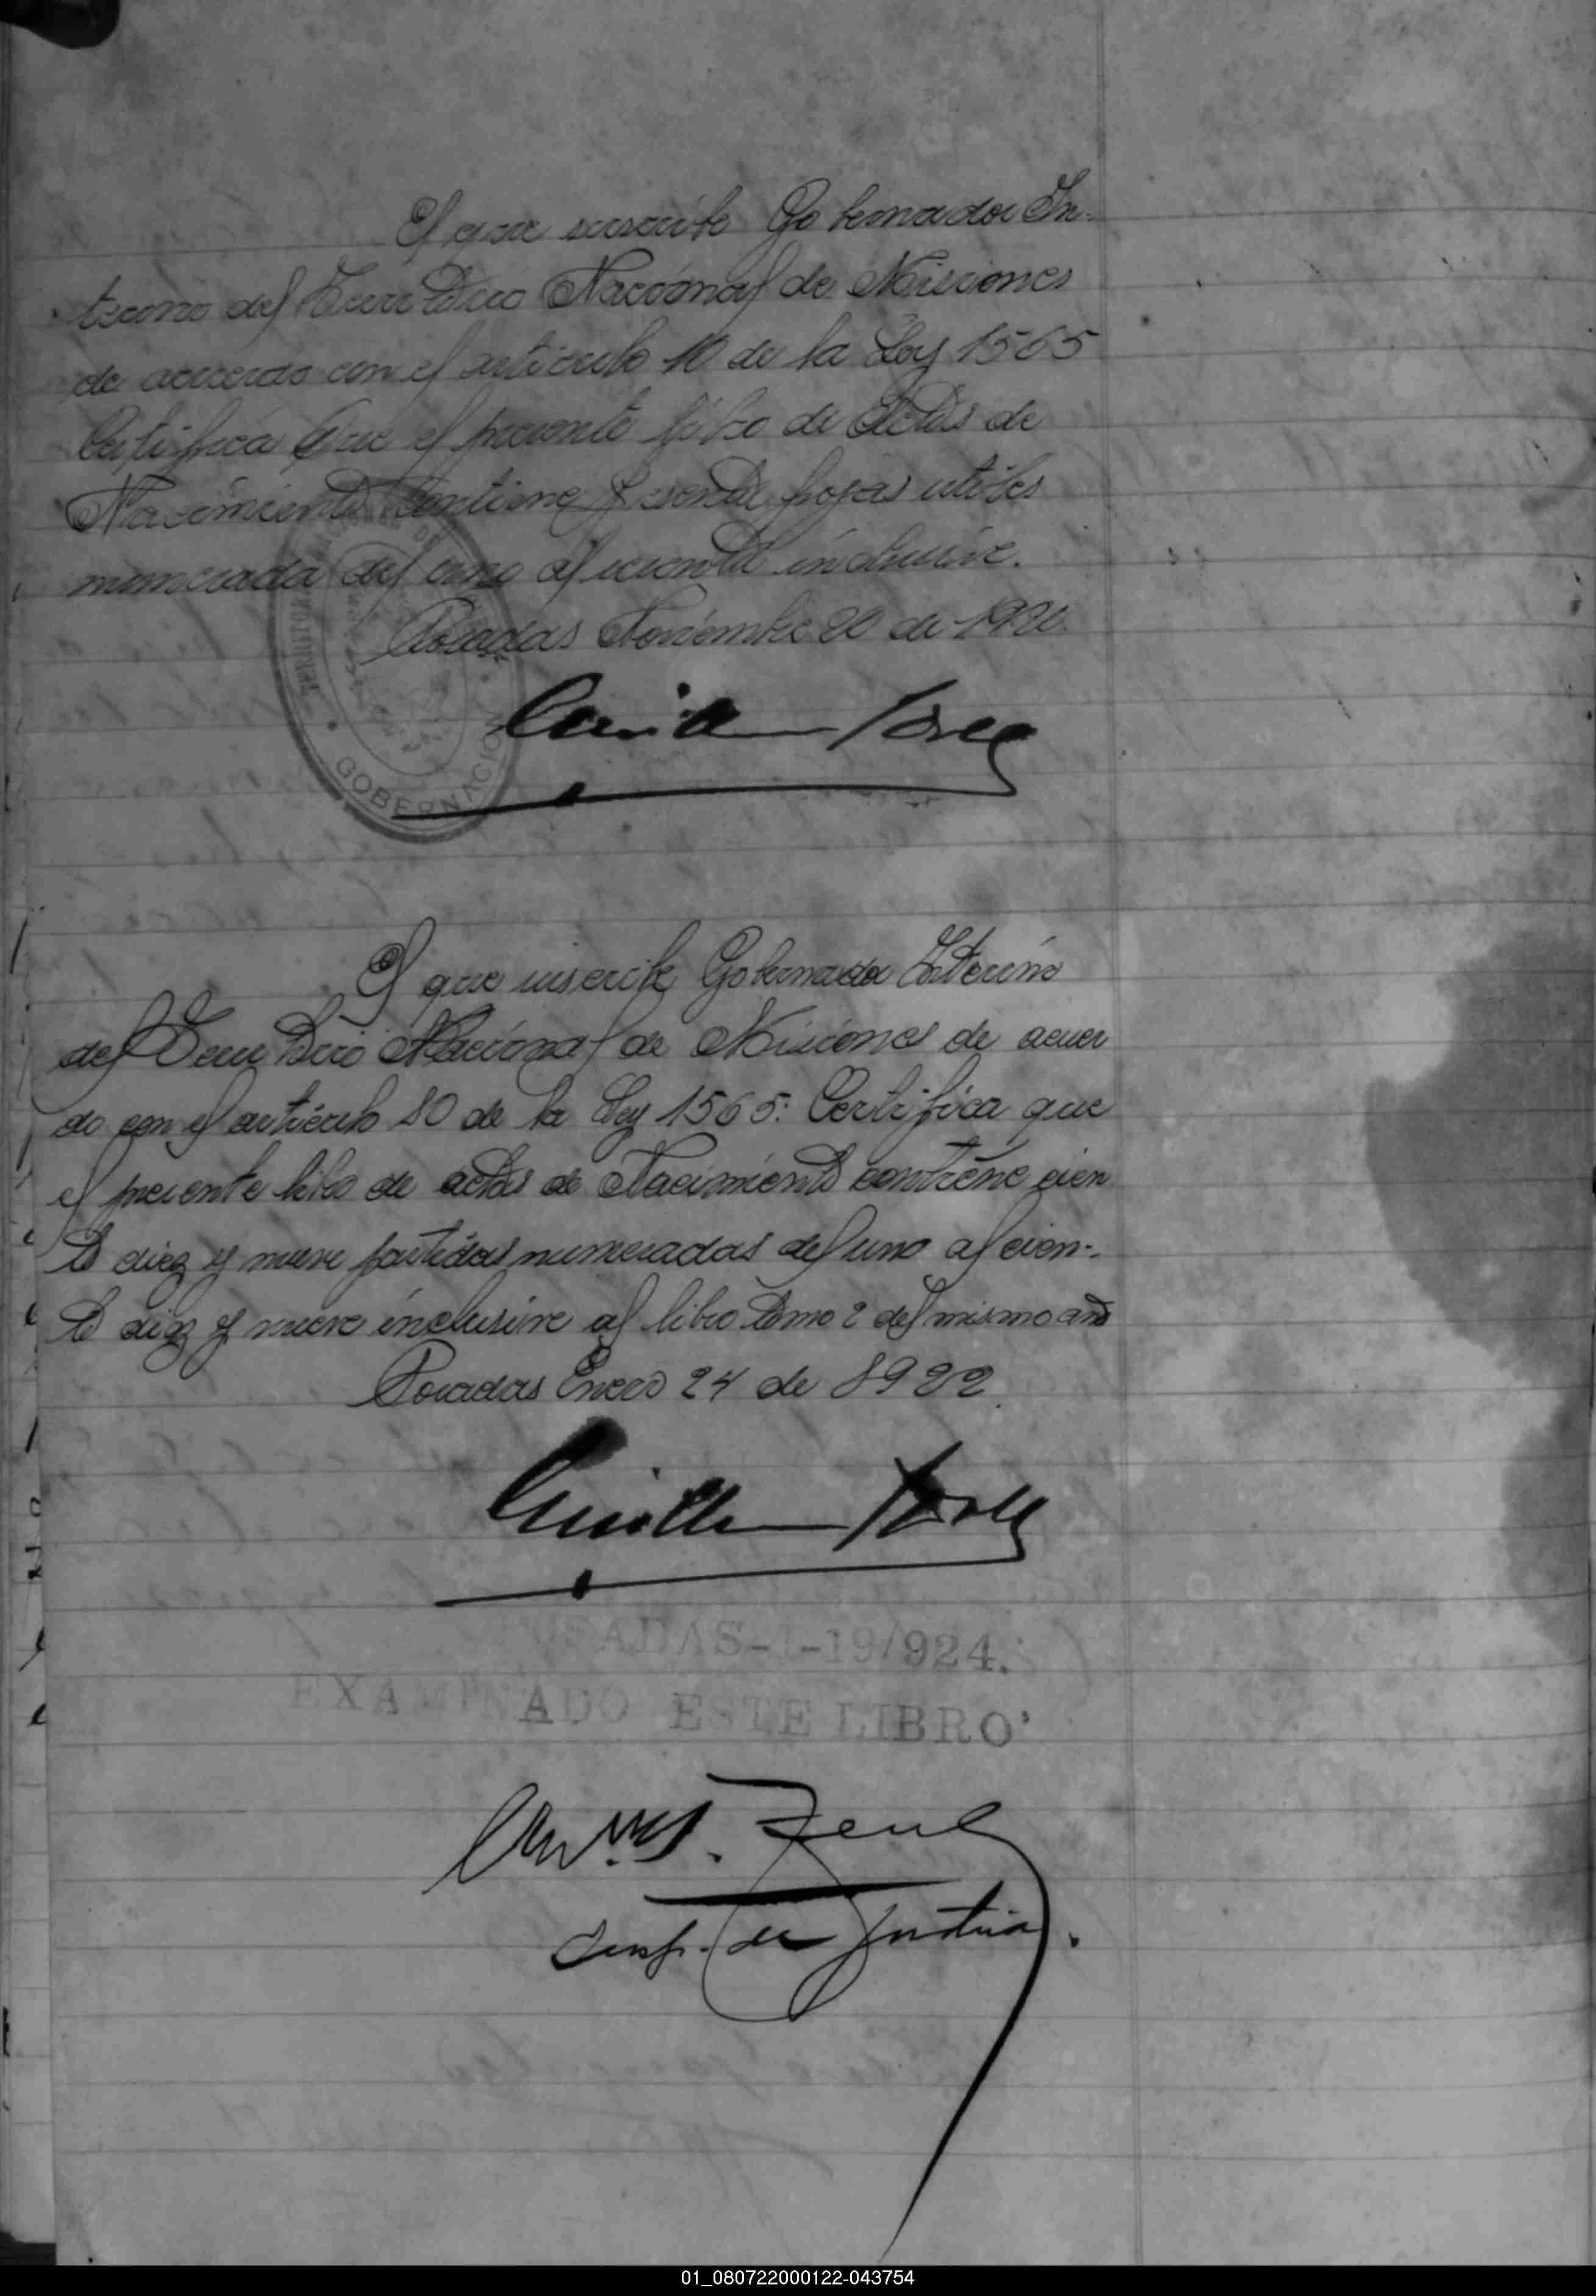 El que suscribe Gobernador In-
terino del Territorio Nacional de Misiones
de acuerdo con el articulo 10 de la Ley 1565
Certifica Que el presente libro de Actas de
Nacimiento Contiene Sesenta fojas utiles
numerada del uno al sesenta inclusive.
Posadas Noviembre 20 de 1920.
GOBERNACION
El que suscribe Gobernador Interino
del Territorio Nacional de Misiones de acuer
do con el articulo 80 de la Ley 1565: Certifica que
el presente libro de actas de Nacimiento contiene cien
to diez y nueve partidas numeradas del uno al cien-
to diez y nueve inclusive al libro tomo 2 del mismo año
Posadas Enero 24 de 1922.
POSADAS-1-19/924.
EXAMINADO ESTE LIBRO
Insp. de Justicia.
01_080722000122-043754